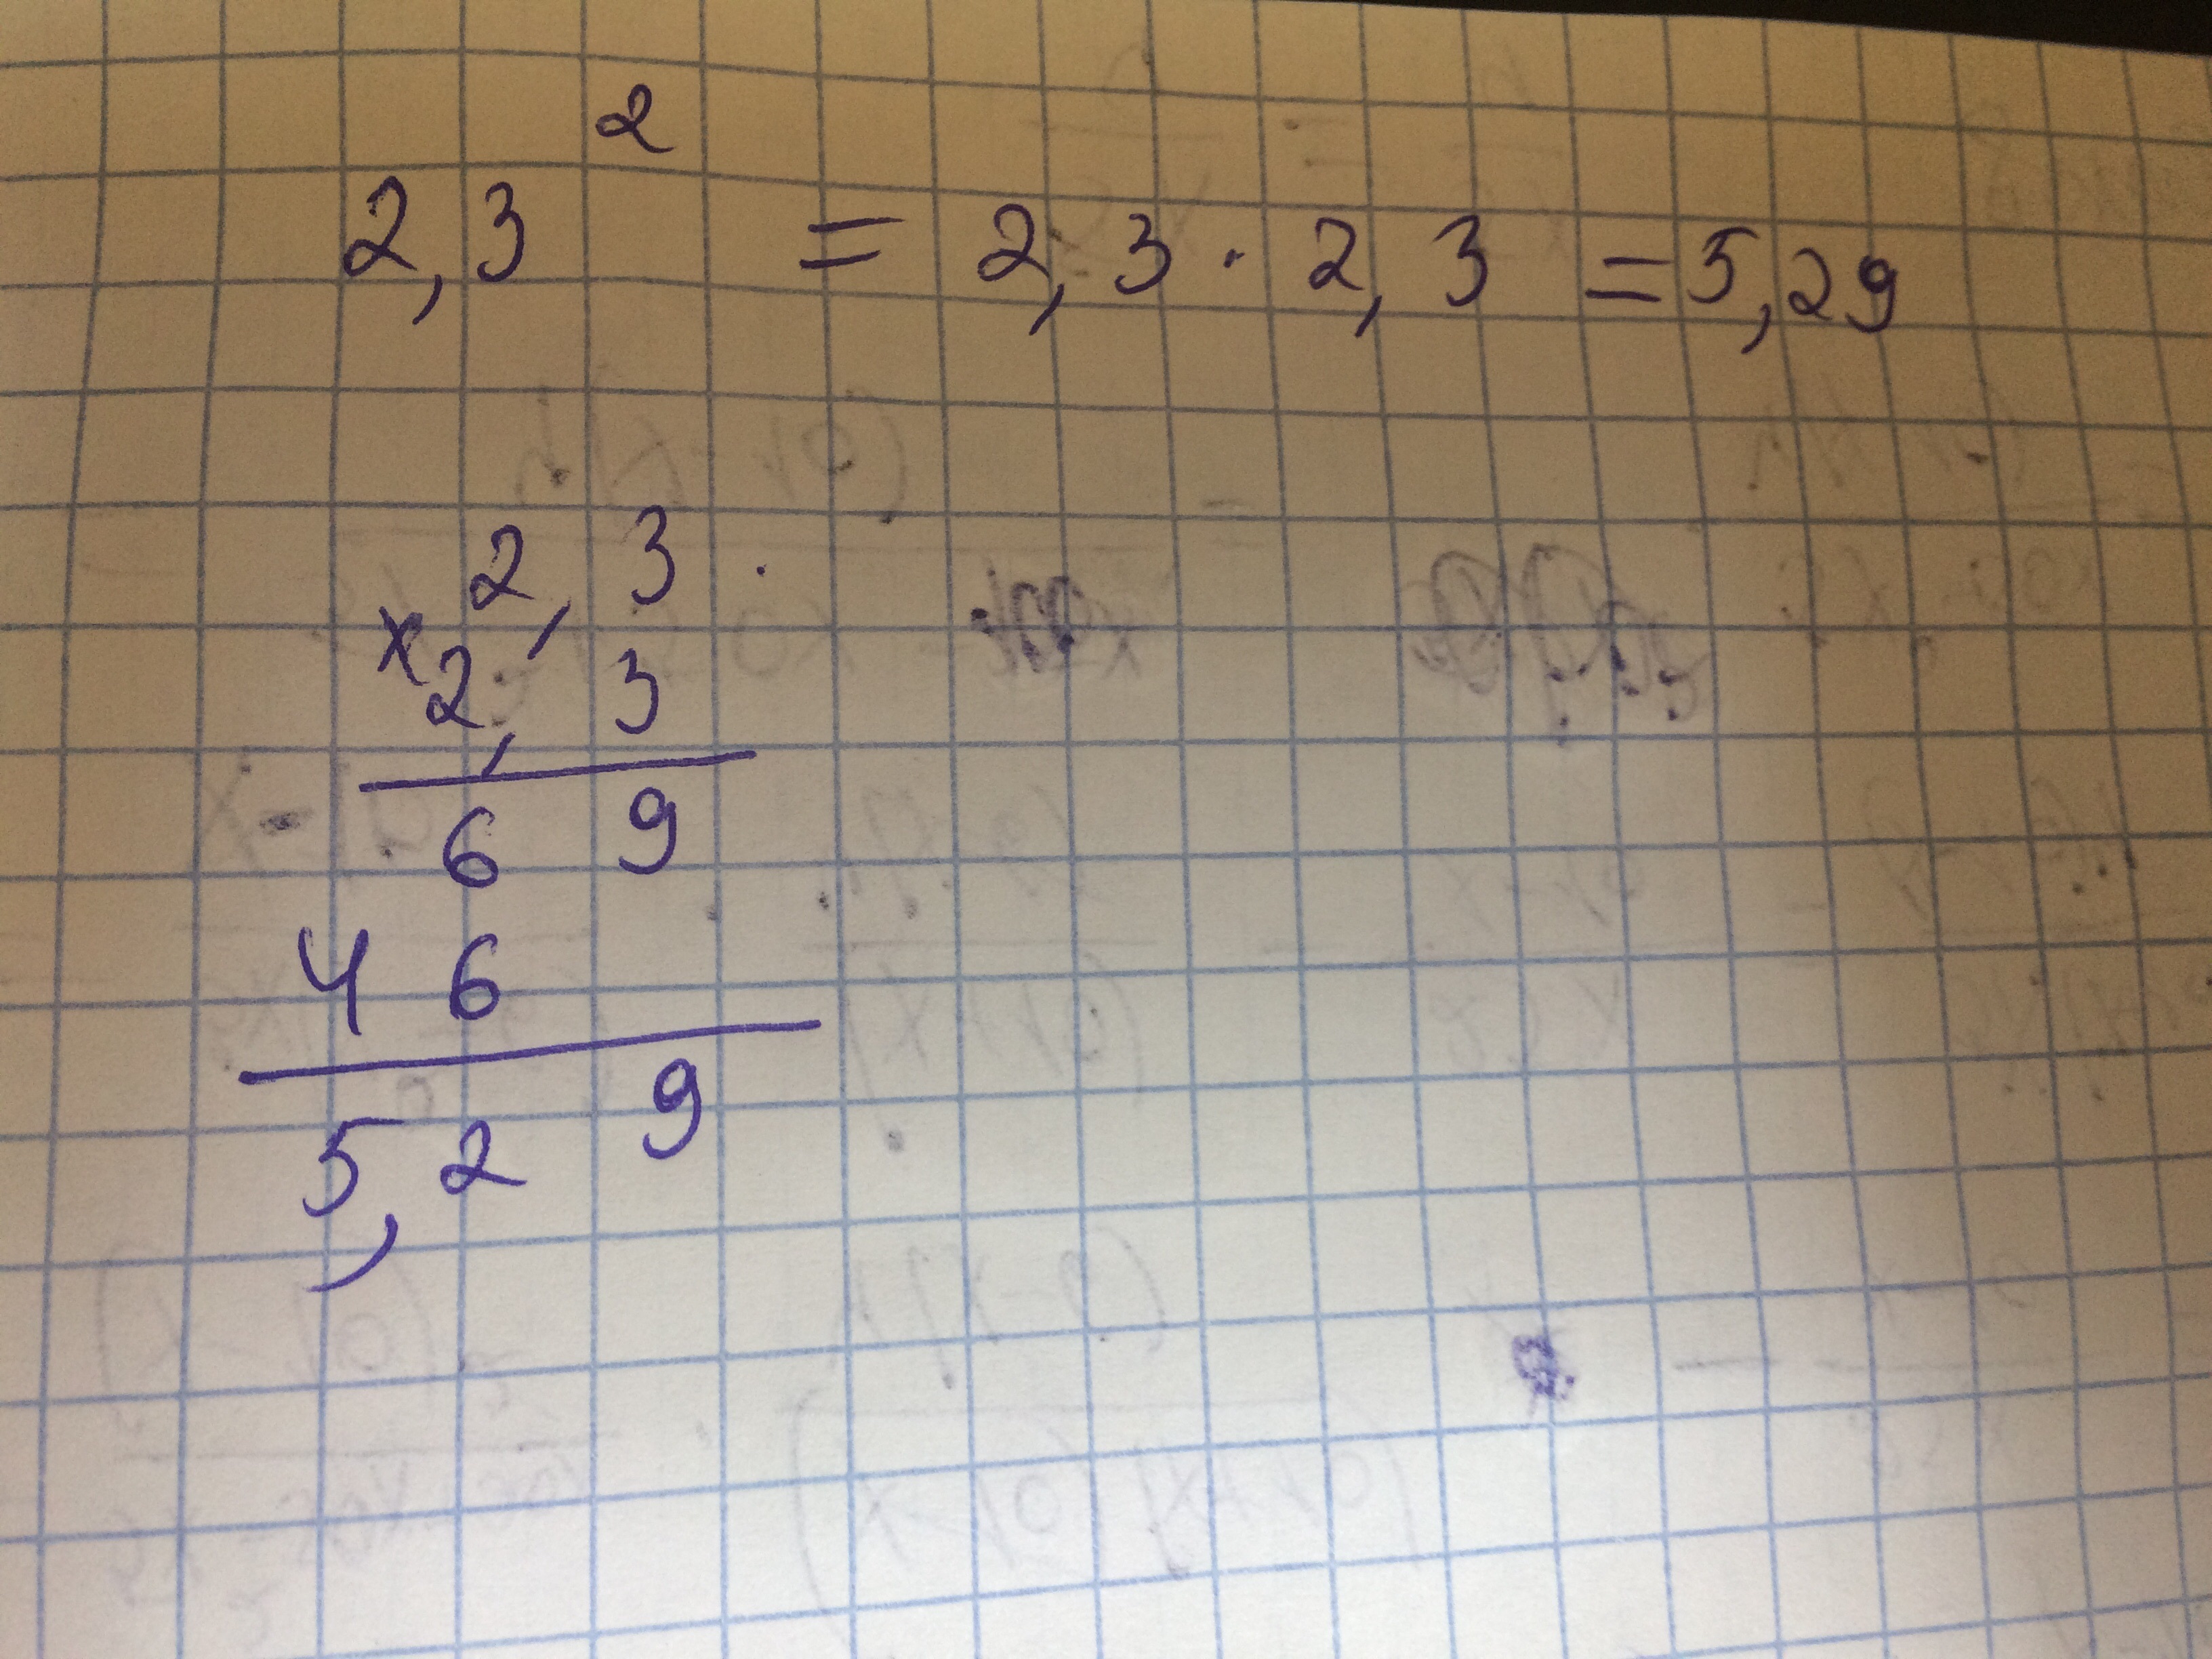 2,3² = 2,3 · 2,3 = 5,29
2,3
× 2,3
69
46
5,29